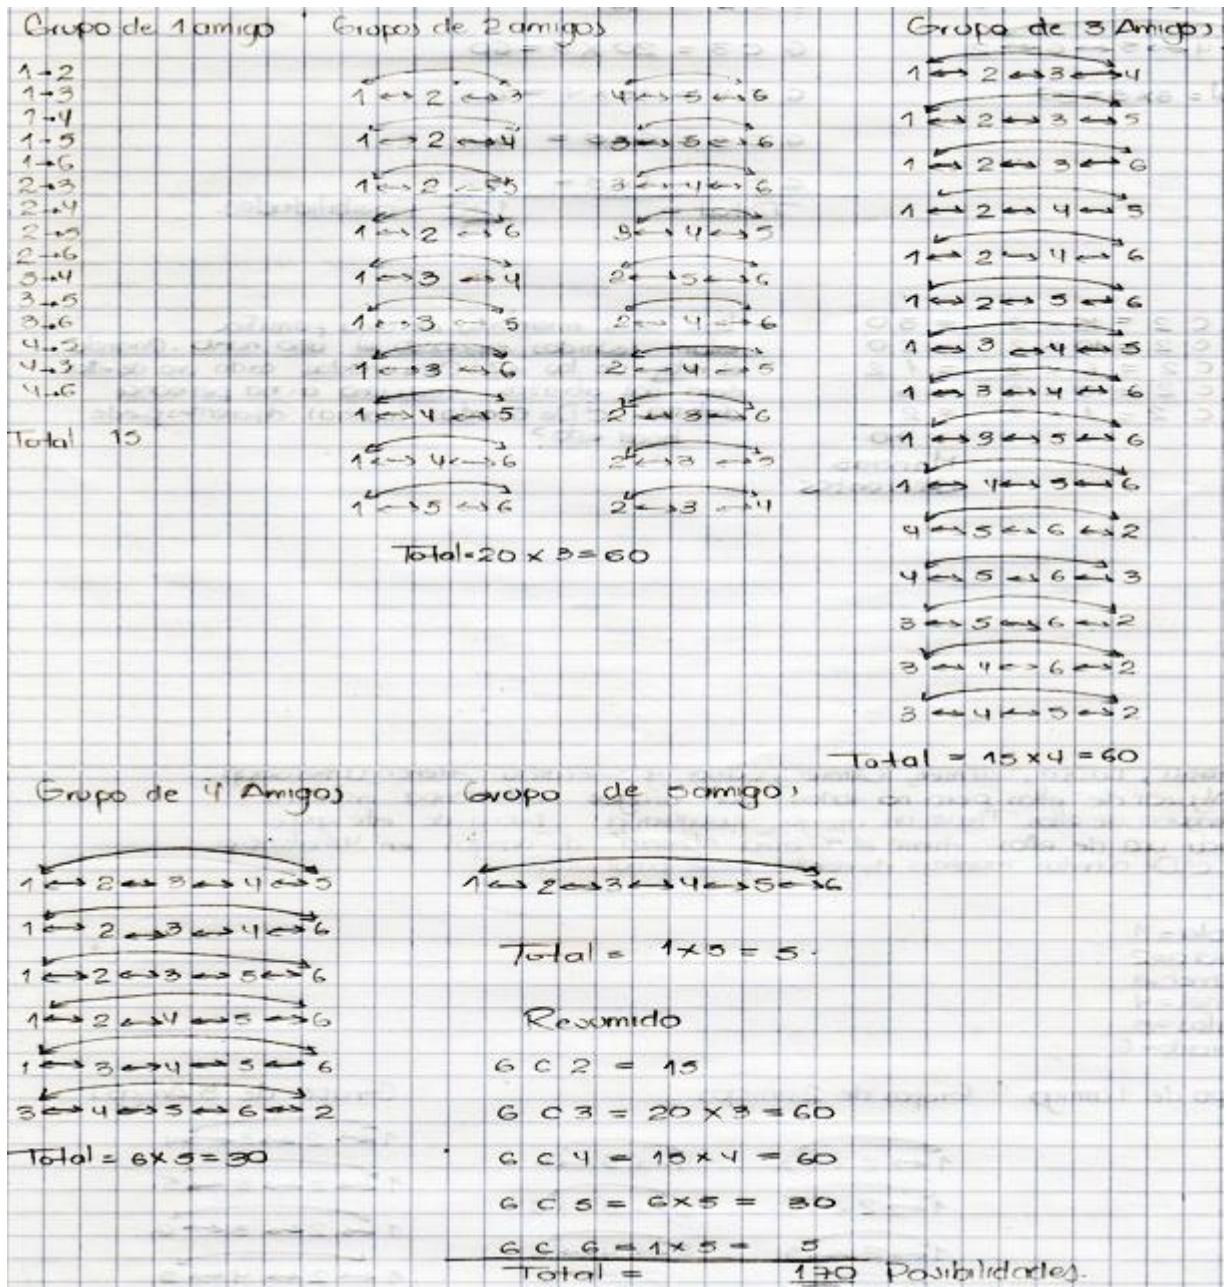 Grupo de 1 amigo
1→2
1→3
1→4
1→5
1→6
2→3
2→4
2→5
2→6
3→4
3→5
3→6
4→5
4→3
4→6
Total 15
Grupos de 2 amigos
1 ↔ 2 ↔ 3 4 ↔ 5 ↔ 6
1 ↔ 2 ↔ 4 3 ↔ 5 ↔ 6
1 ↔ 2 ↔ 5 3 ↔ 4 ↔ 6
1 ↔ 2 ↔ 6 3 ↔ 4 ↔ 5
1 ↔ 3 ↔ 4 2 ↔ 5 ↔ 6
1 ↔ 3 ↔ 5 2 ↔ 4 ↔ 6
1 ↔ 3 ↔ 6 2 ↔ 4 ↔ 5
1 ↔ 4 ↔ 5 2 ↔ 3 ↔ 6
1 ↔ 4 ↔ 6 2 ↔ 3 ↔ 5
1 ↔ 5 ↔ 6 2 ↔ 3 ↔ 4
Total=20 x 3=60
Grupo de 3 Amigos
1 ↔ 2 ↔ 3 ↔ 4
1 ↔ 2 ↔ 3 ↔ 5
1 ↔ 2 ↔ 3 ↔ 6
1 ↔ 2 ↔ 4 ↔ 5
1 ↔ 2 ↔ 4 ↔ 6
1 ↔ 2 ↔ 5 ↔ 6
1 ↔ 3 ↔ 4 ↔ 5
1 ↔ 3 ↔ 4 ↔ 6
1 ↔ 3 ↔ 5 ↔ 6
1 ↔ 4 ↔ 5 ↔ 6
4 ↔ 5 ↔ 6 ↔ 2
4 ↔ 5 ↔ 6 ↔ 3
3 ↔ 5 ↔ 6 ↔ 2
3 ↔ 4 ↔ 6 ↔ 2
3 ↔ 4 ↔ 5 ↔ 2
Total = 15 x 4 = 60
Grupo de 4 Amigos
1 ↔ 2 ↔ 3 ↔ 4 ↔ 5
1 ↔ 2 ↔ 3 ↔ 4 ↔ 6
1 ↔ 2 ↔ 3 ↔ 5 ↔ 6
1 ↔ 2 ↔ 4 ↔ 5 ↔ 6
1 ↔ 3 ↔ 4 ↔ 5 ↔ 6
3 ↔ 4 ↔ 5 ↔ 6 ↔ 2
Total = 6x5=30
Grupo de 5 amigos
1 ↔ 2 ↔ 3 ↔ 4 ↔ 5 ↔ 6
Total = 1x5 = 5.
Resumido
6 C 2 = 15
6 C 3 = 20 x 3 = 60
6 C 4 = 15 x 4 = 60
6 C 5 = 6x5 = 30
6 C 6 = 1x5 = 5
Total = 170 Posibilidades.